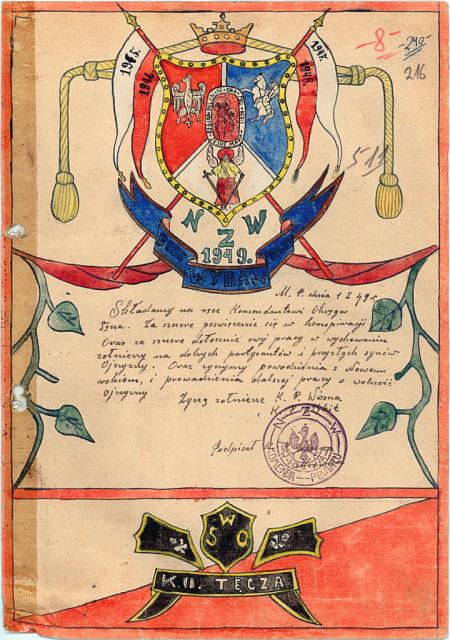 -8-
-240-
216
511
1945.
1946.
1947.
1948.
N Z W
1949.
WYTRWAŁ
M. P. dnia 1 I 49 r.
Składamy na ręce Komendantowi Okręgu
Za szczere poświęcenie się w konspiracji
Oraz za szczere dołożenie swej pracy w wychowaniu
żołnierzy na dobrych partyzantów i przyszłych synów
Ojczyzny. Oraz życzymy powodzenia z Nowem
rokiem, i prowadzenia dalszej pracy o wolność
Ojczyzny
Życzą żołnierze K. P. Wiosna
Podpisał
N Z W
KOMENDA POWIATU
S W O
K.O. TĘCZA